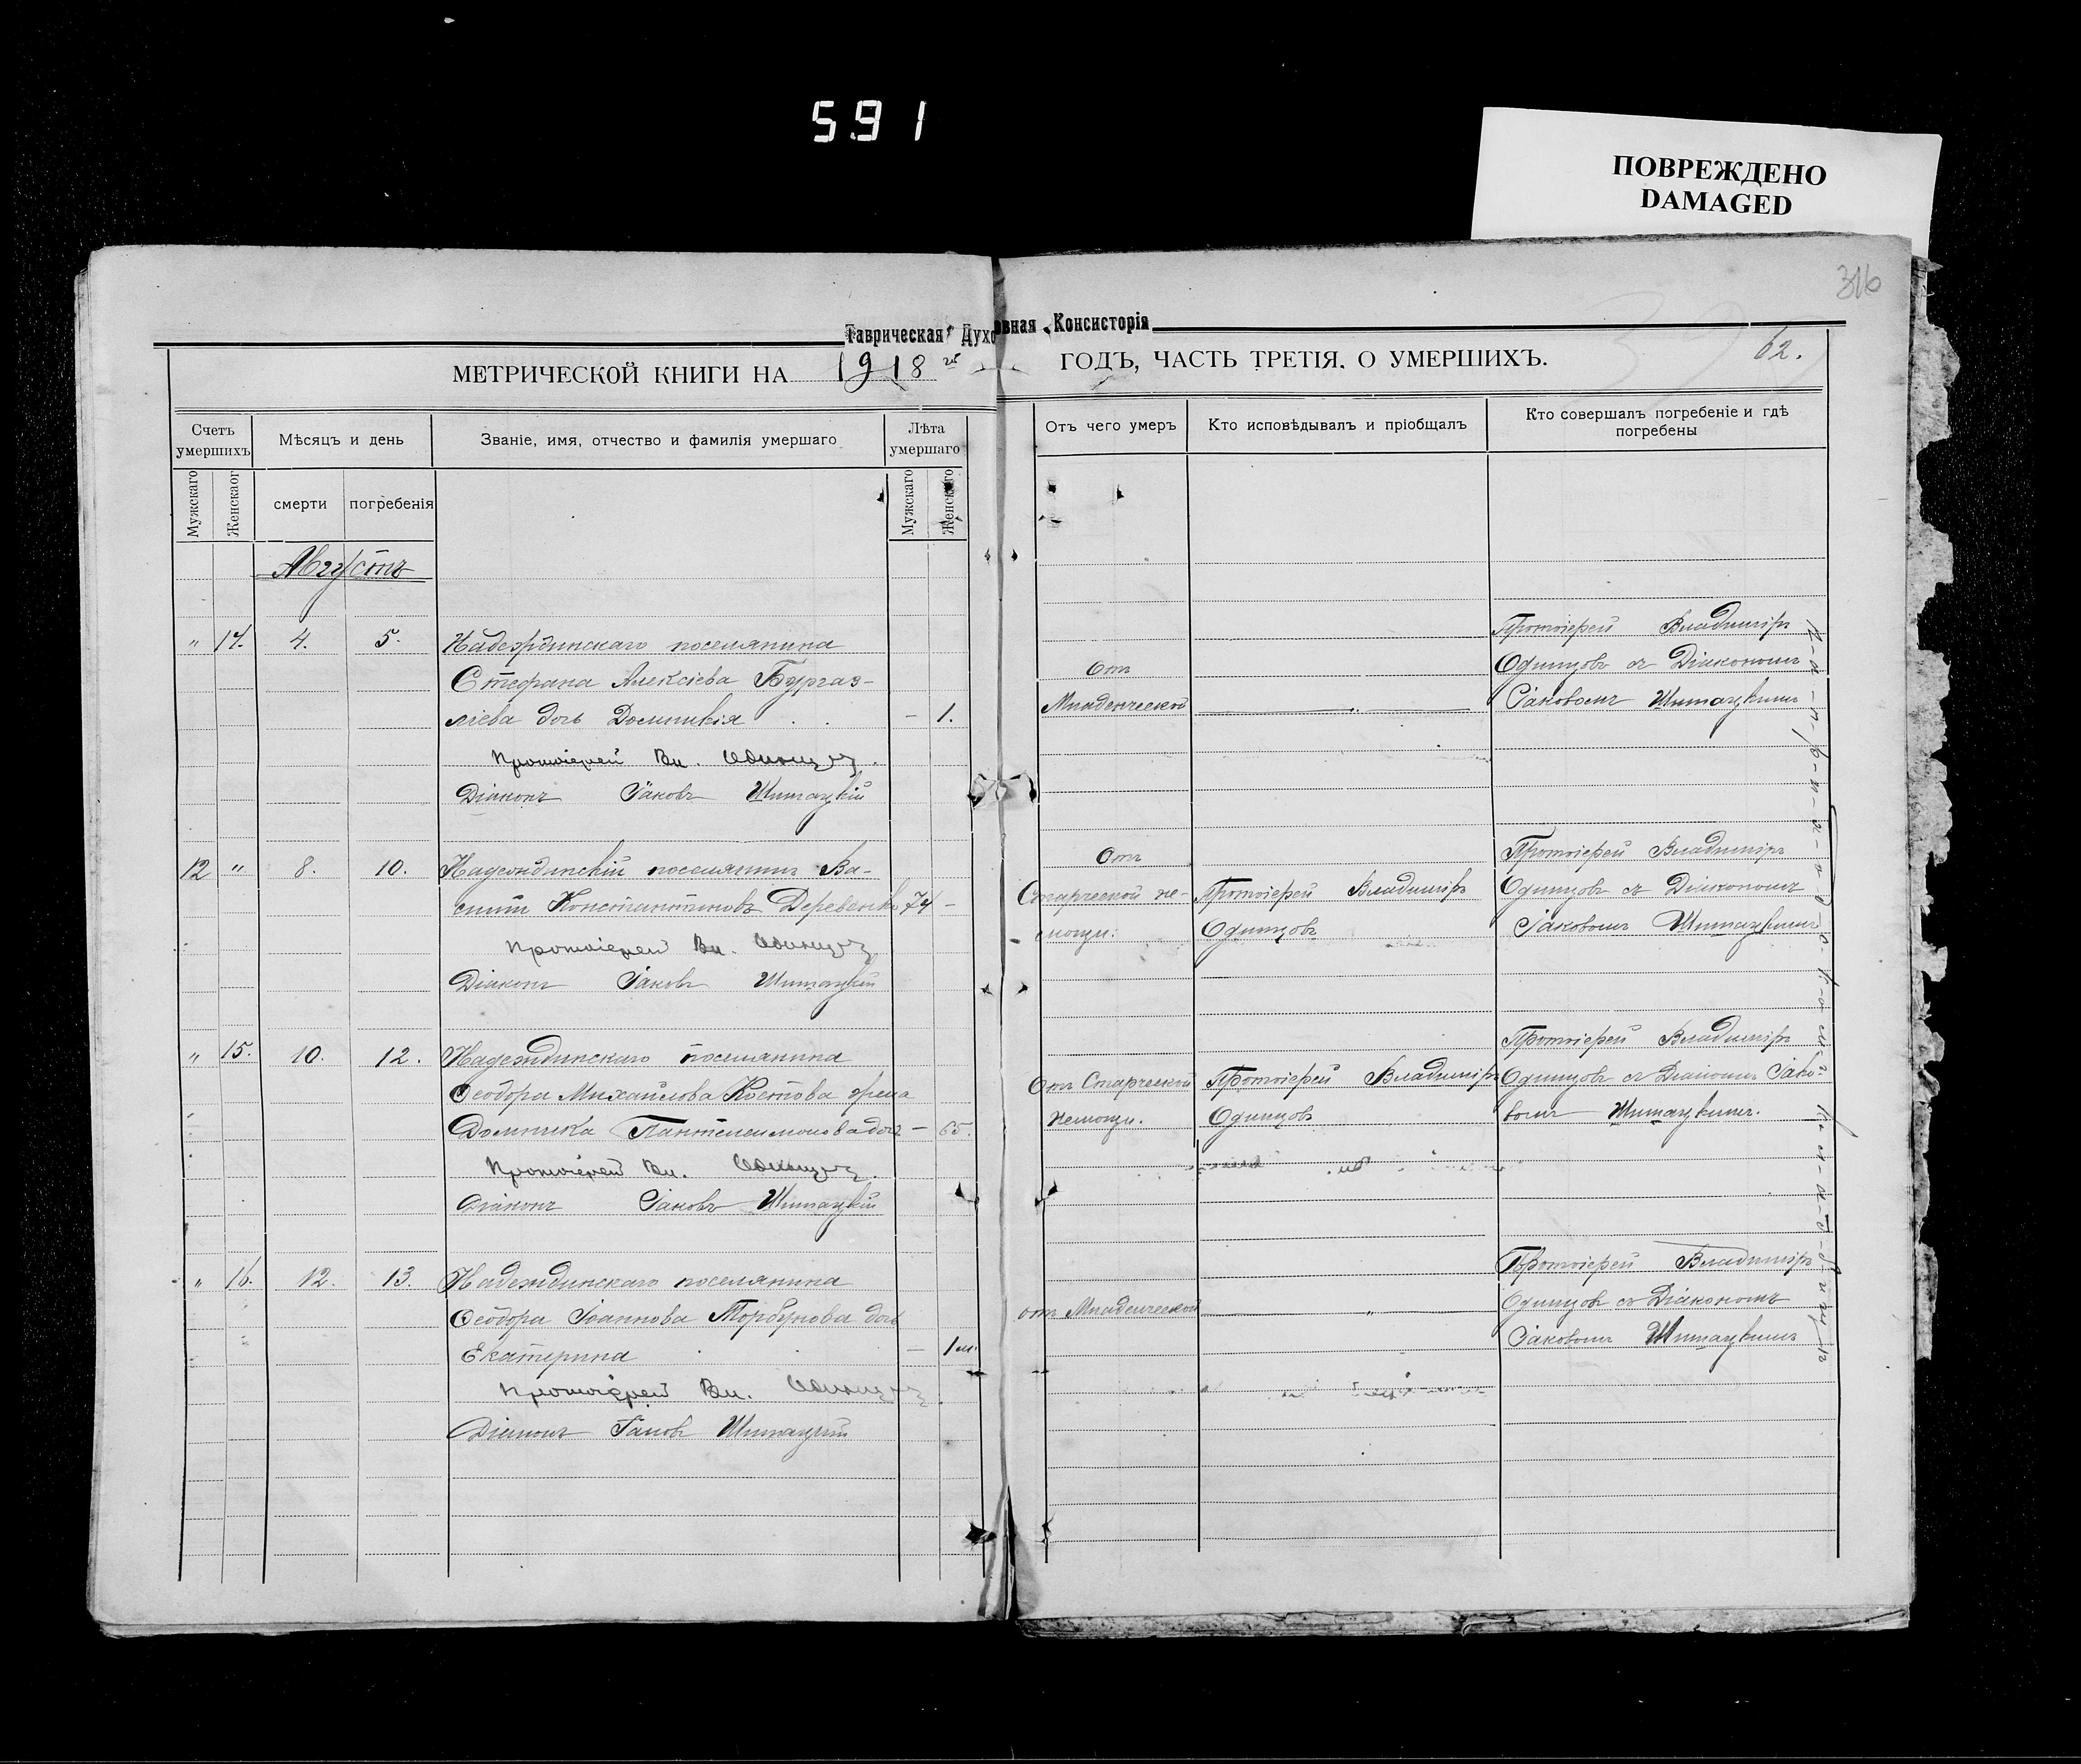 591
ПОВРЕЖДЕНО
DAMAGED
316
Таврическая Духовная Консисторія
МЕТРИЧЕСКОЙ КНИГИ НА 1918 ГОДЪ, ЧАСТЬ ТРЕТІЯ, О УМЕРШИХЪ. 62.
Счетъ умершихъ
Мѣсяцъ и день
Званіе, имя, отчество и фамилія умершаго
Лѣта умершаго
Отъ чего умеръ
Кто исповѣдывалъ и пріобщалъ
Кто совершалъ погребеніе и гдѣ погребены
Мужскаго
Женскаог
смерти
погребенія
Мужскаго
Женскаго
Августъ
" 14. 4. 5. Надеждинскаго поселянина
Стефана Алексіева Бургаз-
ліева дочь Домникія - 1.
Протоіерей Вл. Одинцовъ.
Діаконъ Іаковъ Шитацкій
Отъ
Младенческой "
Протоіерей Владиміръ
Одинцовъ съ Діакономъ
Іаковомъ Шитацкимъ
12 " 8. 10. Надеждинскій поселянинъ Ва-
силій Константиновъ Деревенко 74 -
Протоіерей Вл. Одинцовъ
Діаконъ Іаковъ Шитацкій
Отъ
Старческой не-
мощи.
Протоіерей Владиміръ
Одинцовъ
Протоіерей Владиміръ
Одинцовъ съ Діакономъ
Іаковомъ Шитацкимъ
" 15. 10. 12. Надеждинскаго поселянина
Ѳеодора Михайлова Костова жена
Домника Пантелеимонова дочь - 65.
Протоіерей Вл. Одинцовъ.
Діаконъ Іаковъ Шитацкій
Отъ Старческой
немощи.
Протоіерей Владиміръ
Одинцовъ
Протоіерей Владиміръ
Одинцовъ съ Діакономъ Іако-
вомъ Шитацкимъ.
" 16. 12. 13. Надеждинскаго поселянина
Ѳеодора Іоаннова дочь
Екатерина - 1 м.
Протоіерей Вл. Одинцовъ.
Діаконъ Іаковъ Шитацкій
отъ Младенческой "
Протоіерей Владиміръ
Одинцовъ съ Діакономъ
Іаковомъ Шитацкимъ